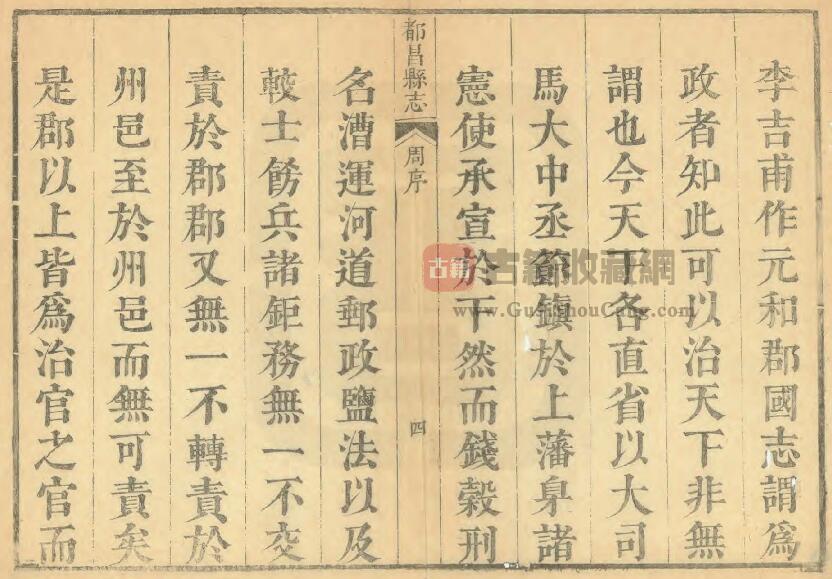 李吉甫作元和郡國志謂爲
政者知此可以治天下非無
謂也今天下各直省以大司
馬大中丞節鎮於上藩臬諸
憲使承宣於下然而錢穀刑
都昌縣志
周序
四
名漕運河道郵政鹽法以及
較士餉兵諸鉅務無一不交
責於郡郡又無一不轉責於
州邑至於州邑而無可責矣
是郡以上皆爲治官之官而
古籍
古籍收藏網
www.GujiShouCang.com